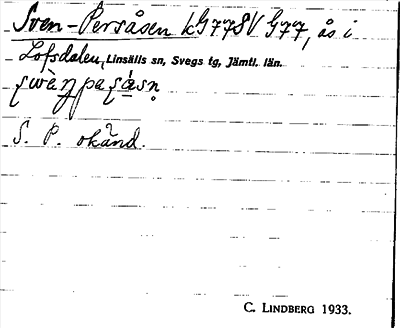 Sven-Persåsen kG778V G77, ås i
Lofsdalen, Linsälls sn, Svegs tg, Jämtl. län.
S. P. okänd.
C. LINDBERG 1933.